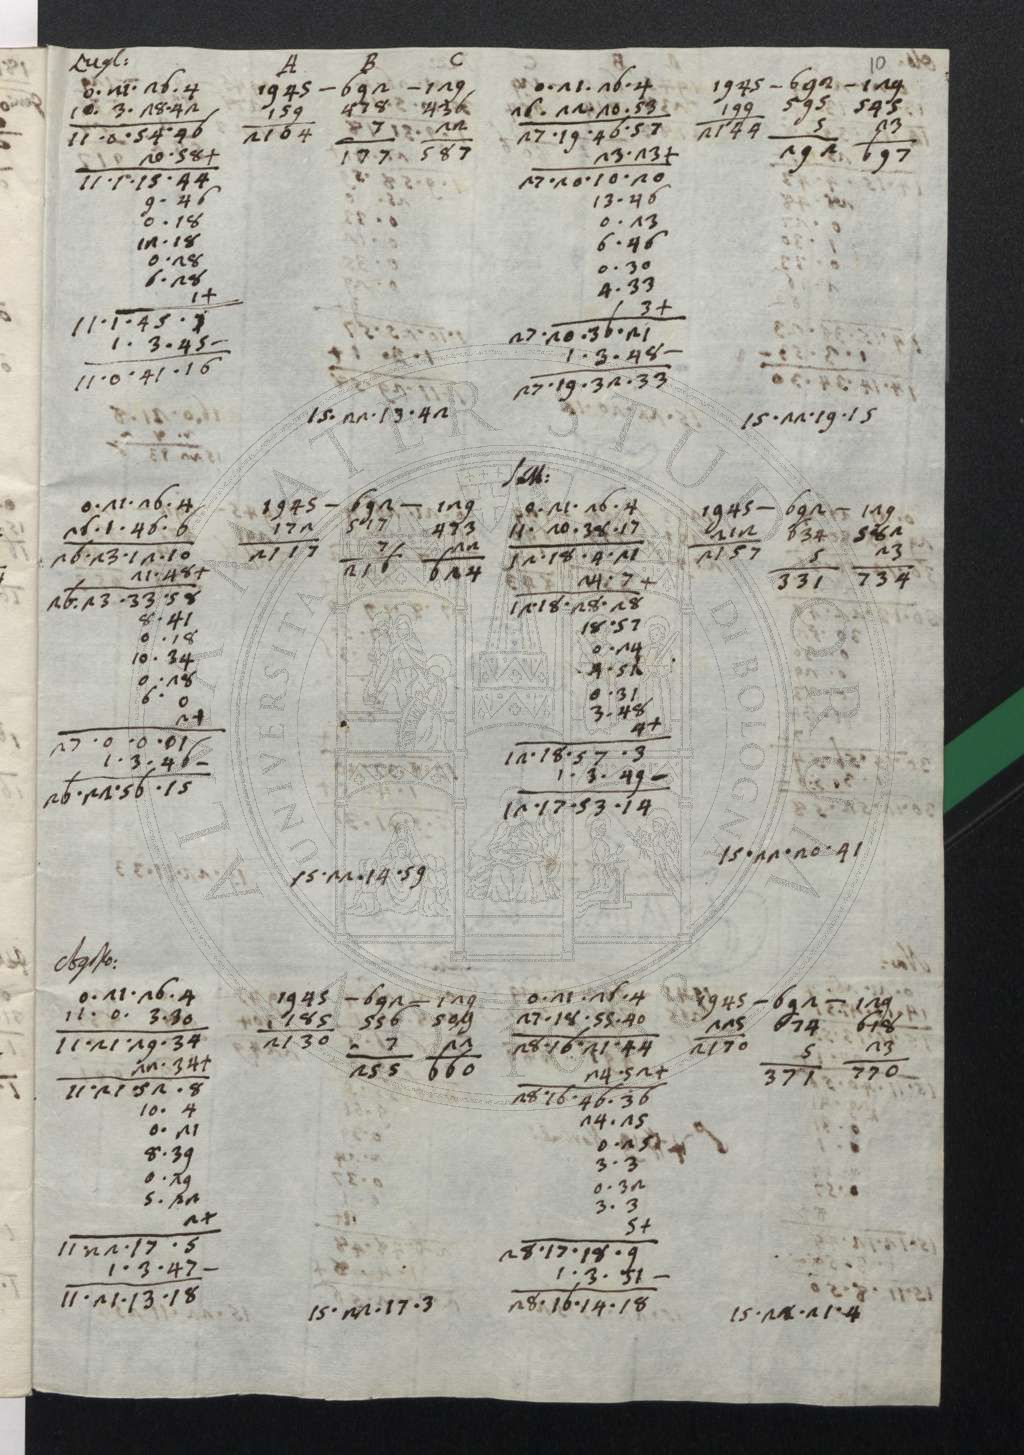 Lugl:
A B C
10
0.21.26.4 1945 – 692 – 129
10.3.28.42 159 478 436
11.0.54.46 2104 7 22
20.58+ 177 587
11.1.15.44
9.46
0.18
12.18
0.28
6.28
1+
11.1.45.1
1.3.45–
11.0.41.16
15.22.13.42
0.21.26.4 1945 – 692 – 129
26.22.20.53 199 595 545
27.19.46.57 2144 5 23
23.23+ 292 697
27.20.10.20
13.46
0.23
6.46
0.30
4.33
3+
27.20.36.21
1.3.48–
27.19.32.33
15.22.19.15
0.21.26.4 1945 – 692 – 129
26.1.46.6 172 517 473
26.23.12.10 2117 7 22
21.48+ 216 624
26.23.33.58
8.41
0.18
10.34
0.28
6.0
2+
27.0.0.01
1.3.46–
26.22.56.15
15.22.14.59
Sett:
0.21.26.4 1945 – 692 – 129
11.20.38.17 212 634 582
12.18.4.21 2157 5 23
24.7+ 331 734
12.18.28.28
18.57
0.24
4.51
0.31
3.48
4+
12.18.57.3
1.3.49–
12.17.53.14
15.22.20.41
Agosto:
0.21.26.4 1945 – 692 – 129
11.0.3.30 185 556 509
11.21.29.34 2130 7 22
22.34+ 255 660
11.21.52.8
10.4
0.21
8.39
0.29
5.22
2+
11.22.17.5
1.3.47–
11.21.13.18
15.22.17.3
0.21.26.4 1945 – 692 – 129
27.18.55.40 225 674 618
28.16.21.44 2170 5 23
24.52+ 371 770
28.16.46.36
24.25
0.25
3.3
0.32
3.3
5+
28.17.18.9
1.3.51–
28.16.14.18
15.22.21.4
ALMA MATER STUDIORUM
UNIVERSITÀ DI BOLOGNA